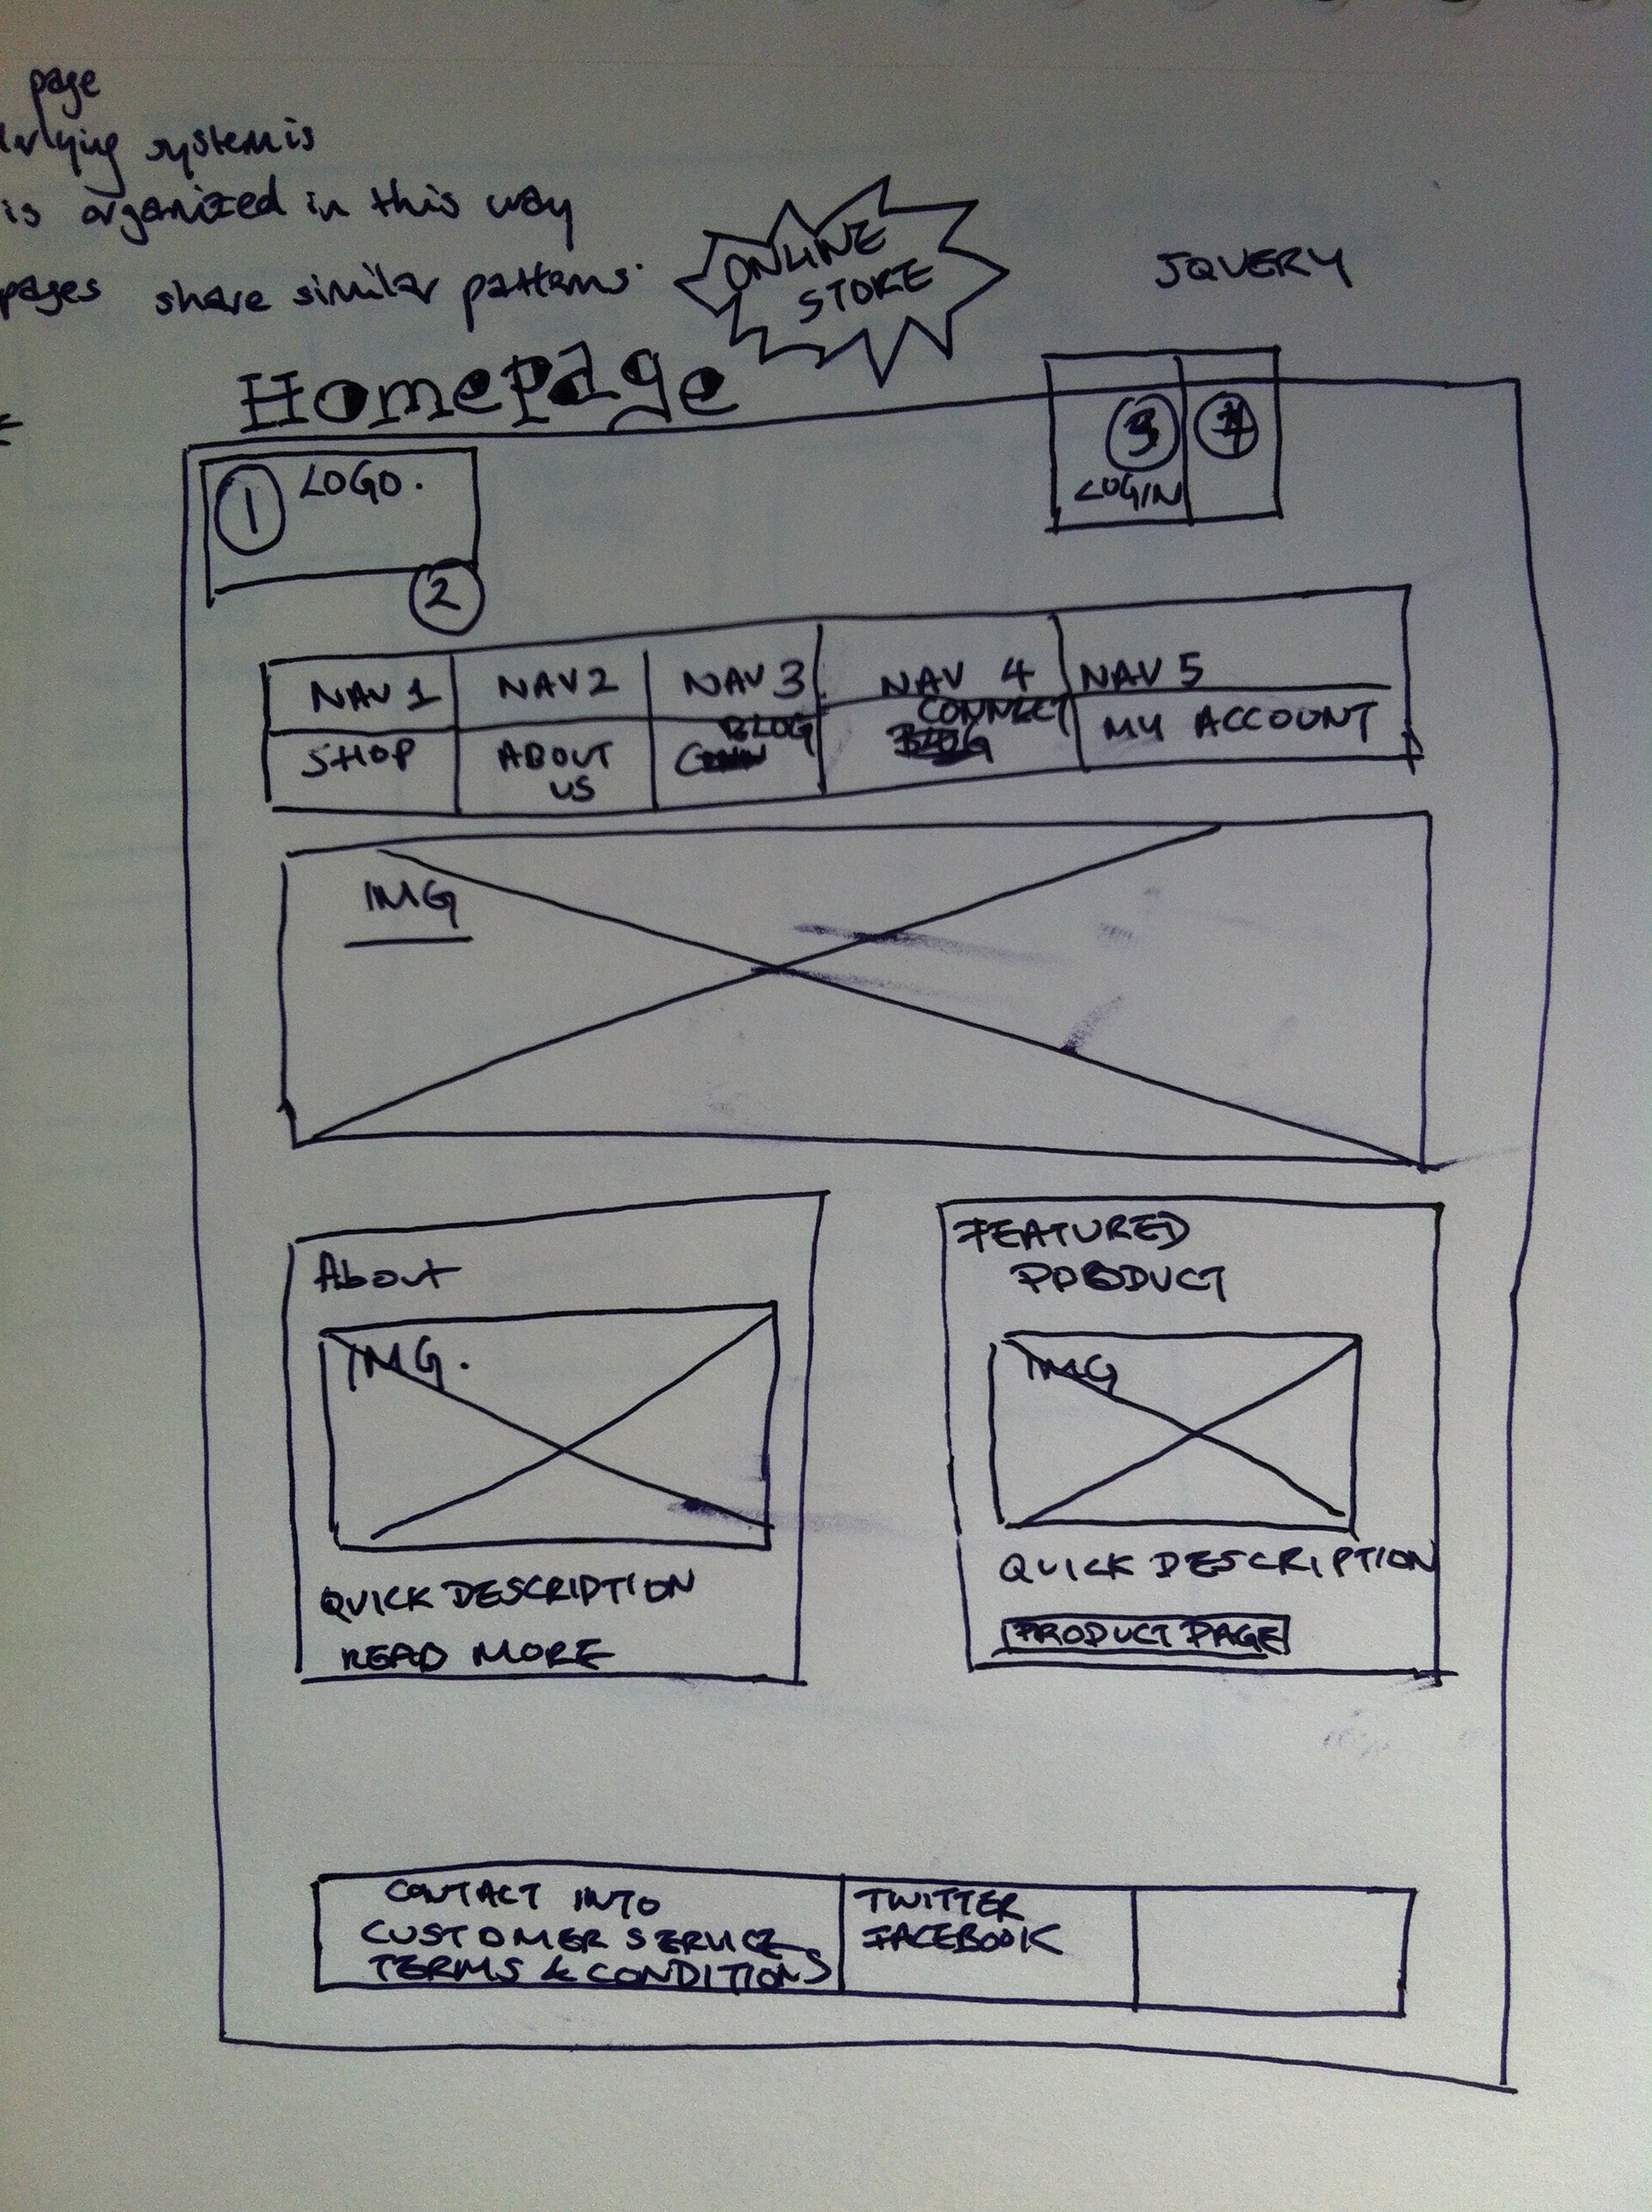 page
system is
is organized in this way
pages share similar patterns.
ONLINE
STORE
JQUERY
Homepage
1 LOGO.
2
3
LOGIN
NAV 1 NAV 2 NAV 3 NAV 4 NAV 5
SHOP ABOUT US BLOG CONNECT MY ACCOUNT
IMG
About
IMG.
QUICK DESCRIPTION
READ MORE
FEATURED
PRODUCT
IMG
QUICK DESCRIPTION
PRODUCT PAGE
CONTACT INFO
CUSTOMER SERVICE
TERMS & CONDITIONS
TWITTER
FACEBOOK